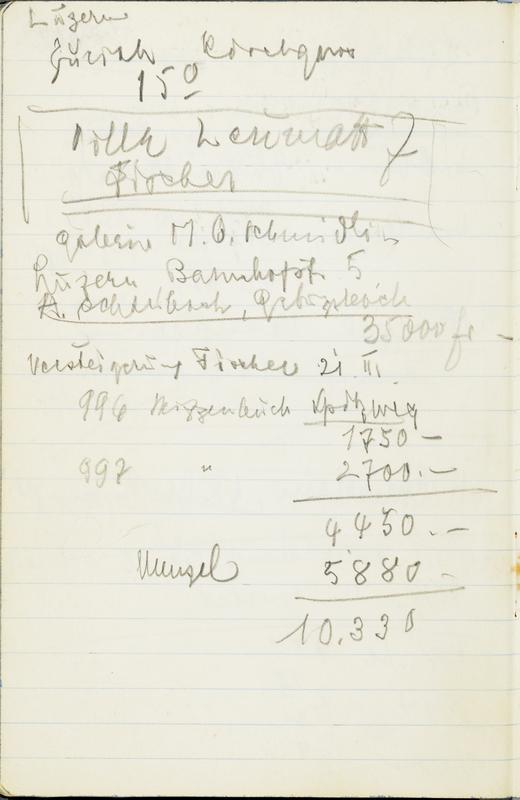 Luzern
Zürich
15⁰
Villa
Fischer
Galerie M. O. Schmidlin
Luzern Bahnhofstr. 5
A.
35000 fr –
Versteigerung Fischer 21 III
996 Skizzenbuch Spitzweg
1750 –
997 " 2700.–
4450.–
Menzel 5880 –
10.330